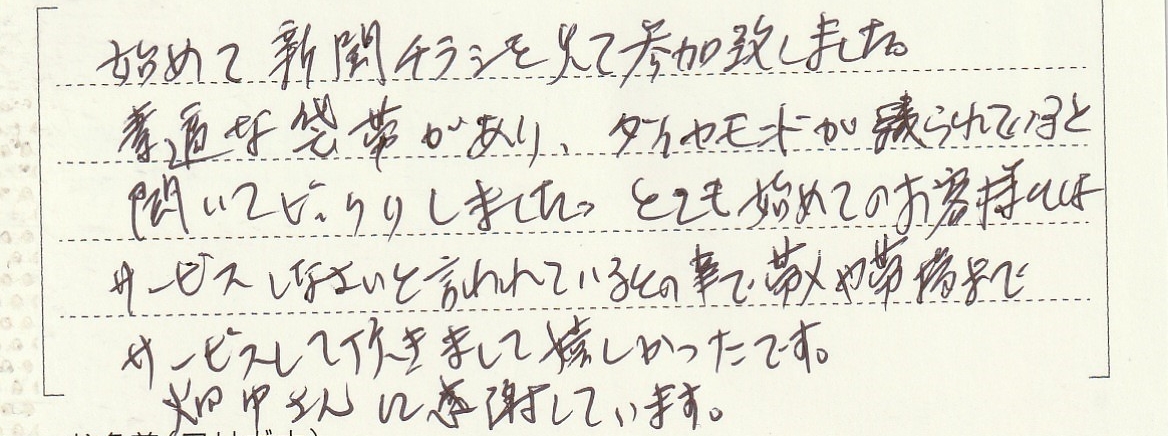 始めて新聞チラシを見て参加致しました。
普通な袋帯があり、ダイヤモンドが織られていると
聞いてビックリしました。とても始めてのお客様には
サービスしなさいと言われているとの事で帯〆や帯揚まで
サービスして頂きまして嬉しかったです。
畑中さんに感謝しています。